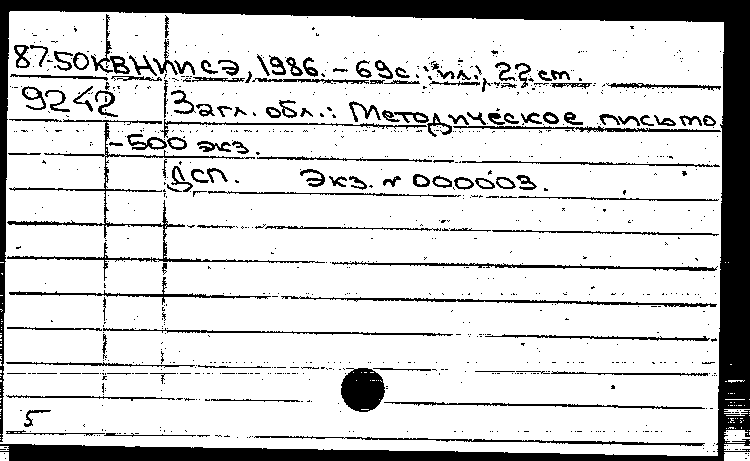 87-50к ВНИИСЭ, 1986. – 69с. : ил.; 22 cm.
9242 Загл. обл.: Методическое письмо
–500 экз.
ДСП. Экз. № 000003.
5